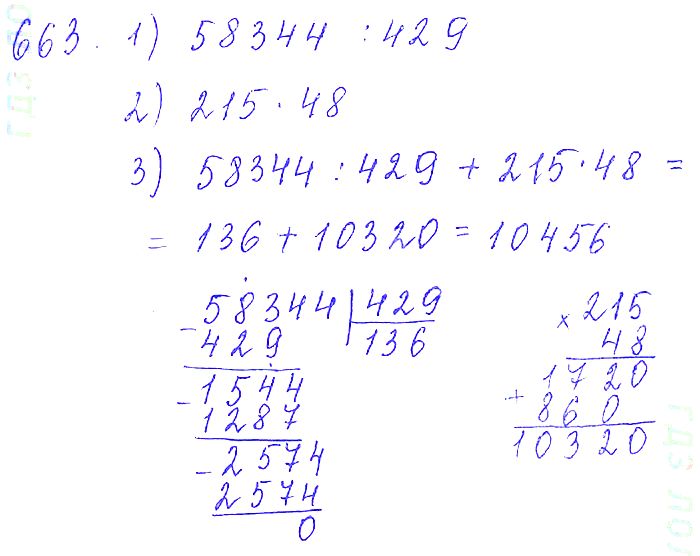 663. 1) 58344 : 429
2) 215 · 48
3) 58344 : 429 + 215 · 48 =
= 136 + 10320 = 10456
- 58344 | 429
429 136
- 1544
1287
- 2574
2574
0
× 215
48
1720
+ 860
10320